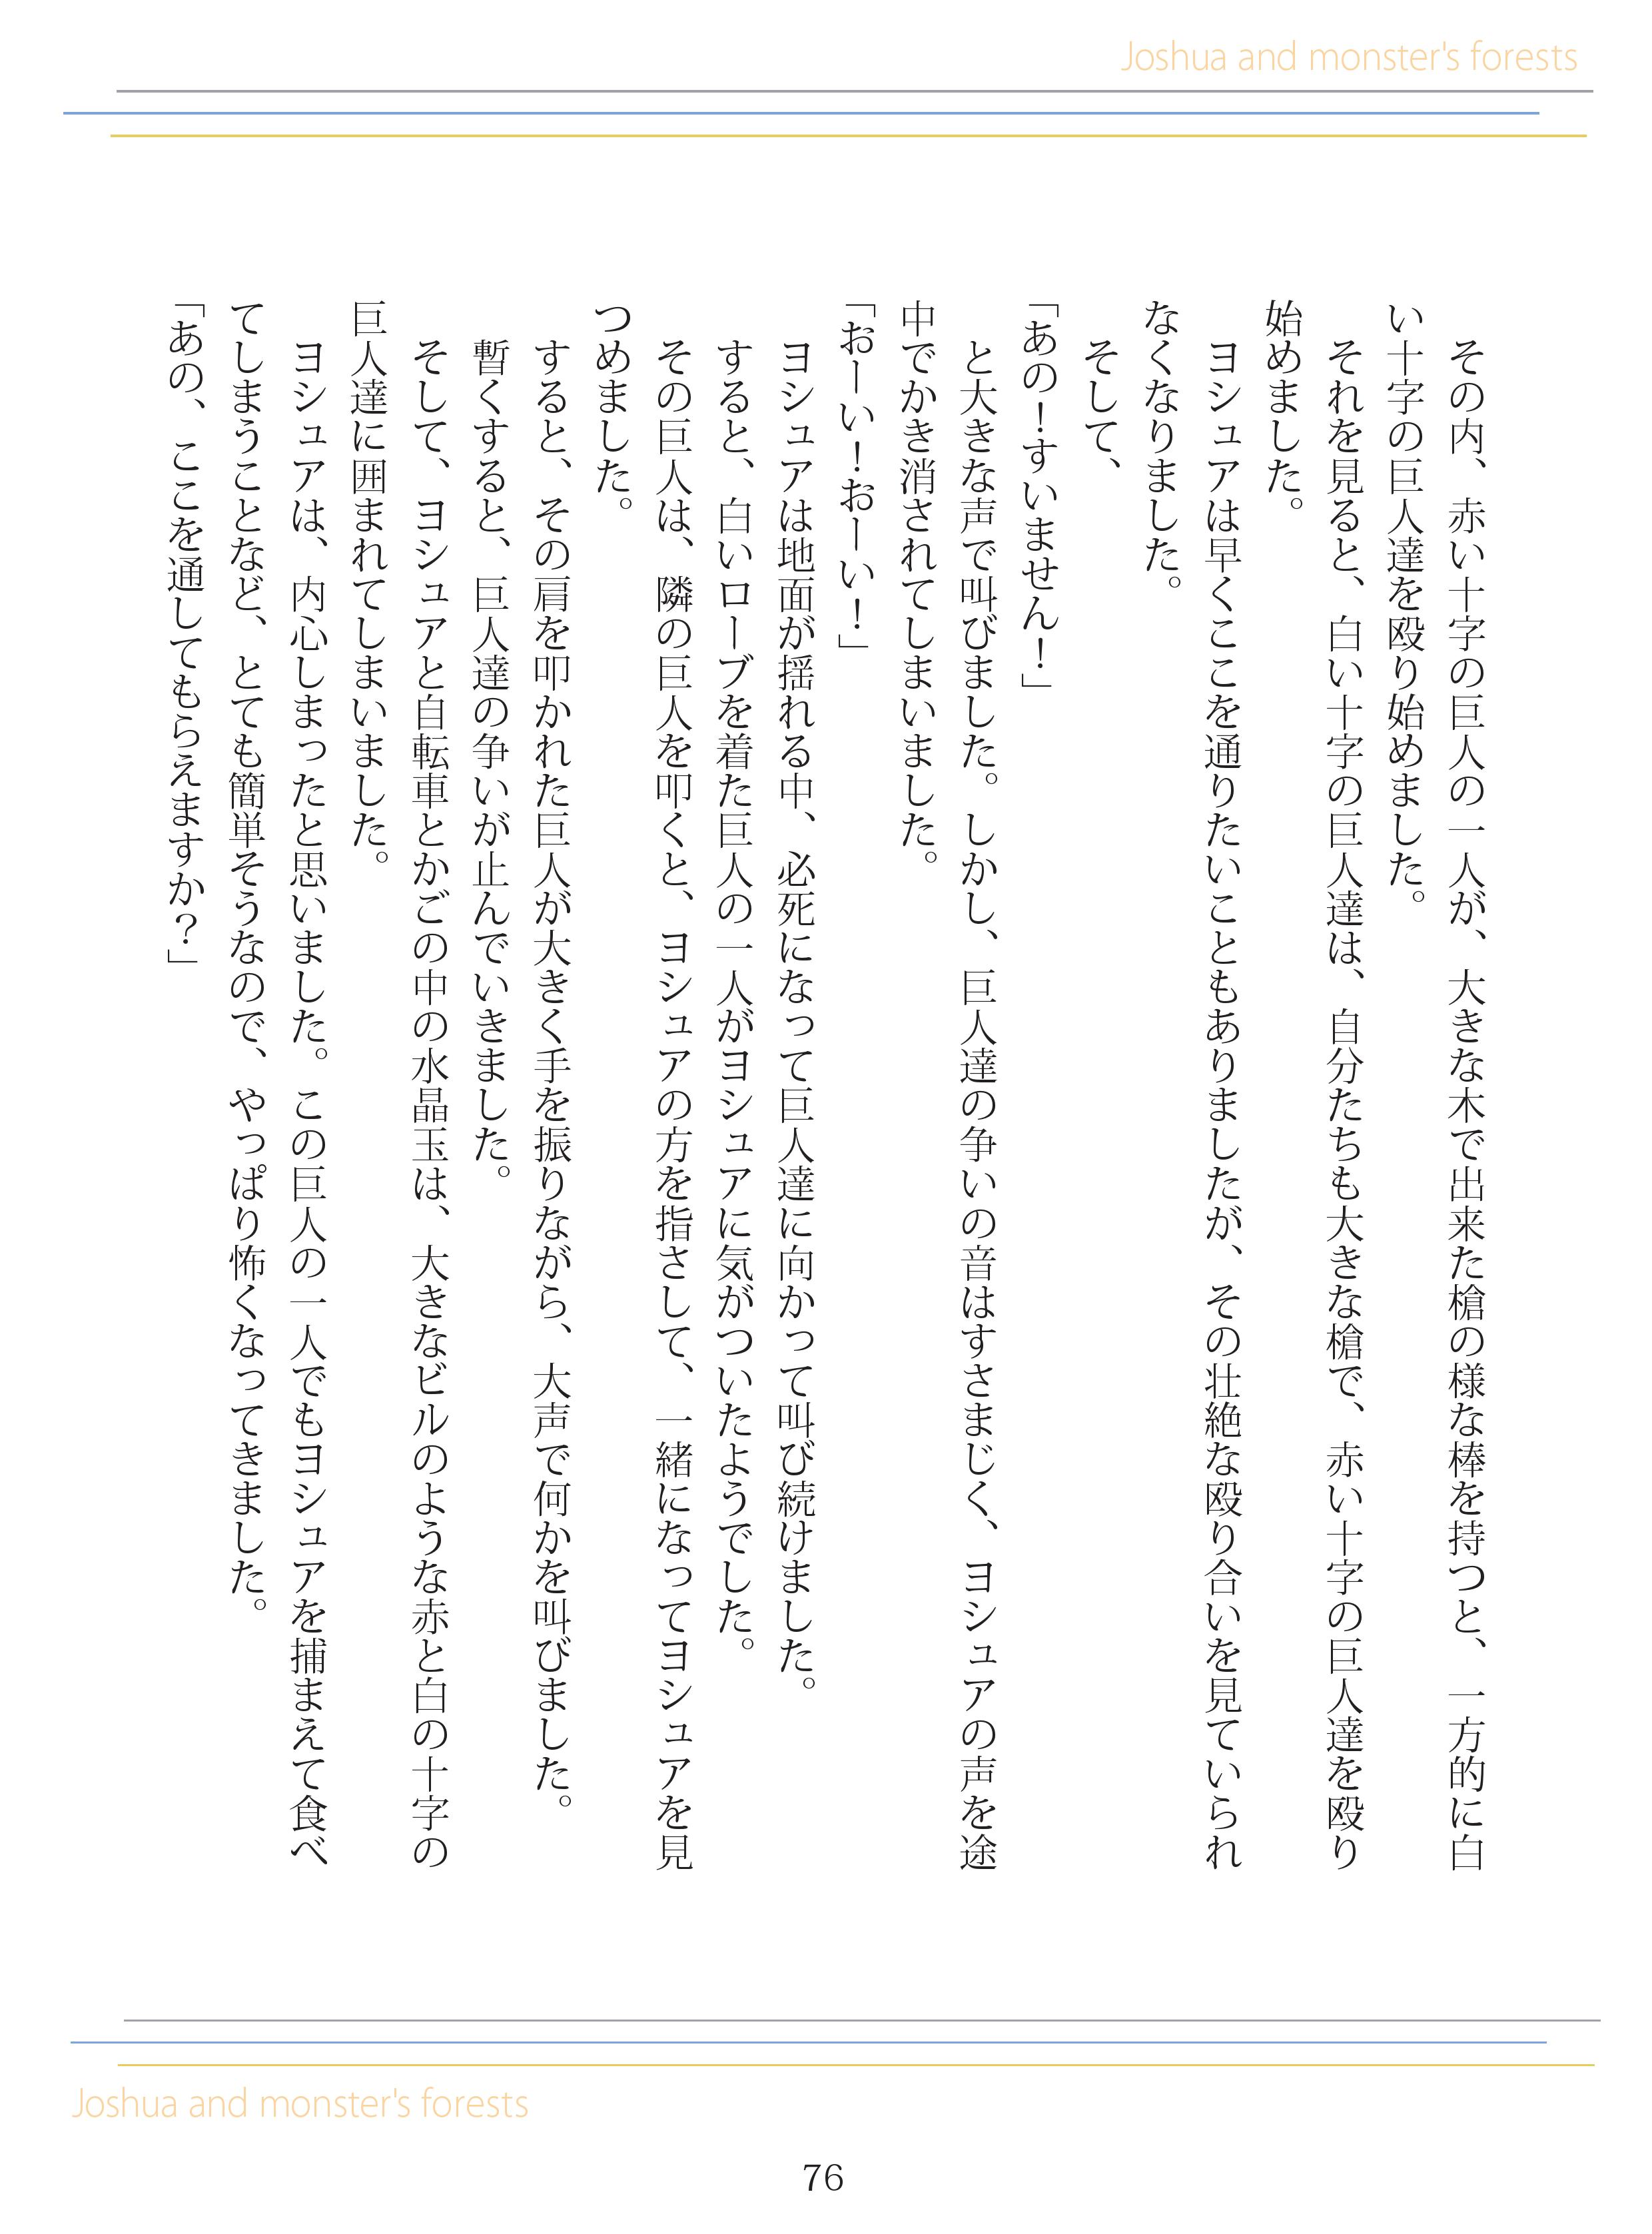 Joshua and monster's forests
その内、赤い十字の巨人の一人が、大きな木で出来た槍の様な棒を持つと、一方的に白
い十字の巨人達を殴り始めました。
それを見ると、白い十字の巨人達は、自分たちも大きな槍で、赤い十字の巨人達を殴り
始めました。
ヨシュアは早くここを通りたいこともありましたが、その壮絶な殴り合いを見ていられ
なくなりました。
そして、
「あの！すいません！」
と大きな声で叫びました。しかし、巨人達の争いの音はすさまじく、ヨシュアの声を途
中でかき消されてしまいました。
「おーい！おーい！」
ヨシュアは地面が揺れる中、必死になって巨人達に向かって叫び続けました。
すると、白いローブを着た巨人の一人がヨシュアに気がついたようでした。
その巨人は、隣の巨人を叩くと、ヨシュアの方を指さして、一緒になってヨシュアを見
つめました。
すると、その肩を叩かれた巨人が大きく手を振りながら、大声で何かを叫びました。
暫くすると、巨人達の争いが止んでいきました。
そして、ヨシュアと自転車とかごの中の水晶玉は、大きなビルのような赤と白の十字の
巨人達に囲まれてしまいました。
ヨシュアは、内心しまったと思いました。この巨人の一人でもヨシュアを捕まえて食べ
てしまうことなど、とても簡単そうなので、やっぱり怖くなってきました。
「あの、ここを通してもらえますか？」
Joshua and monster's forests
76